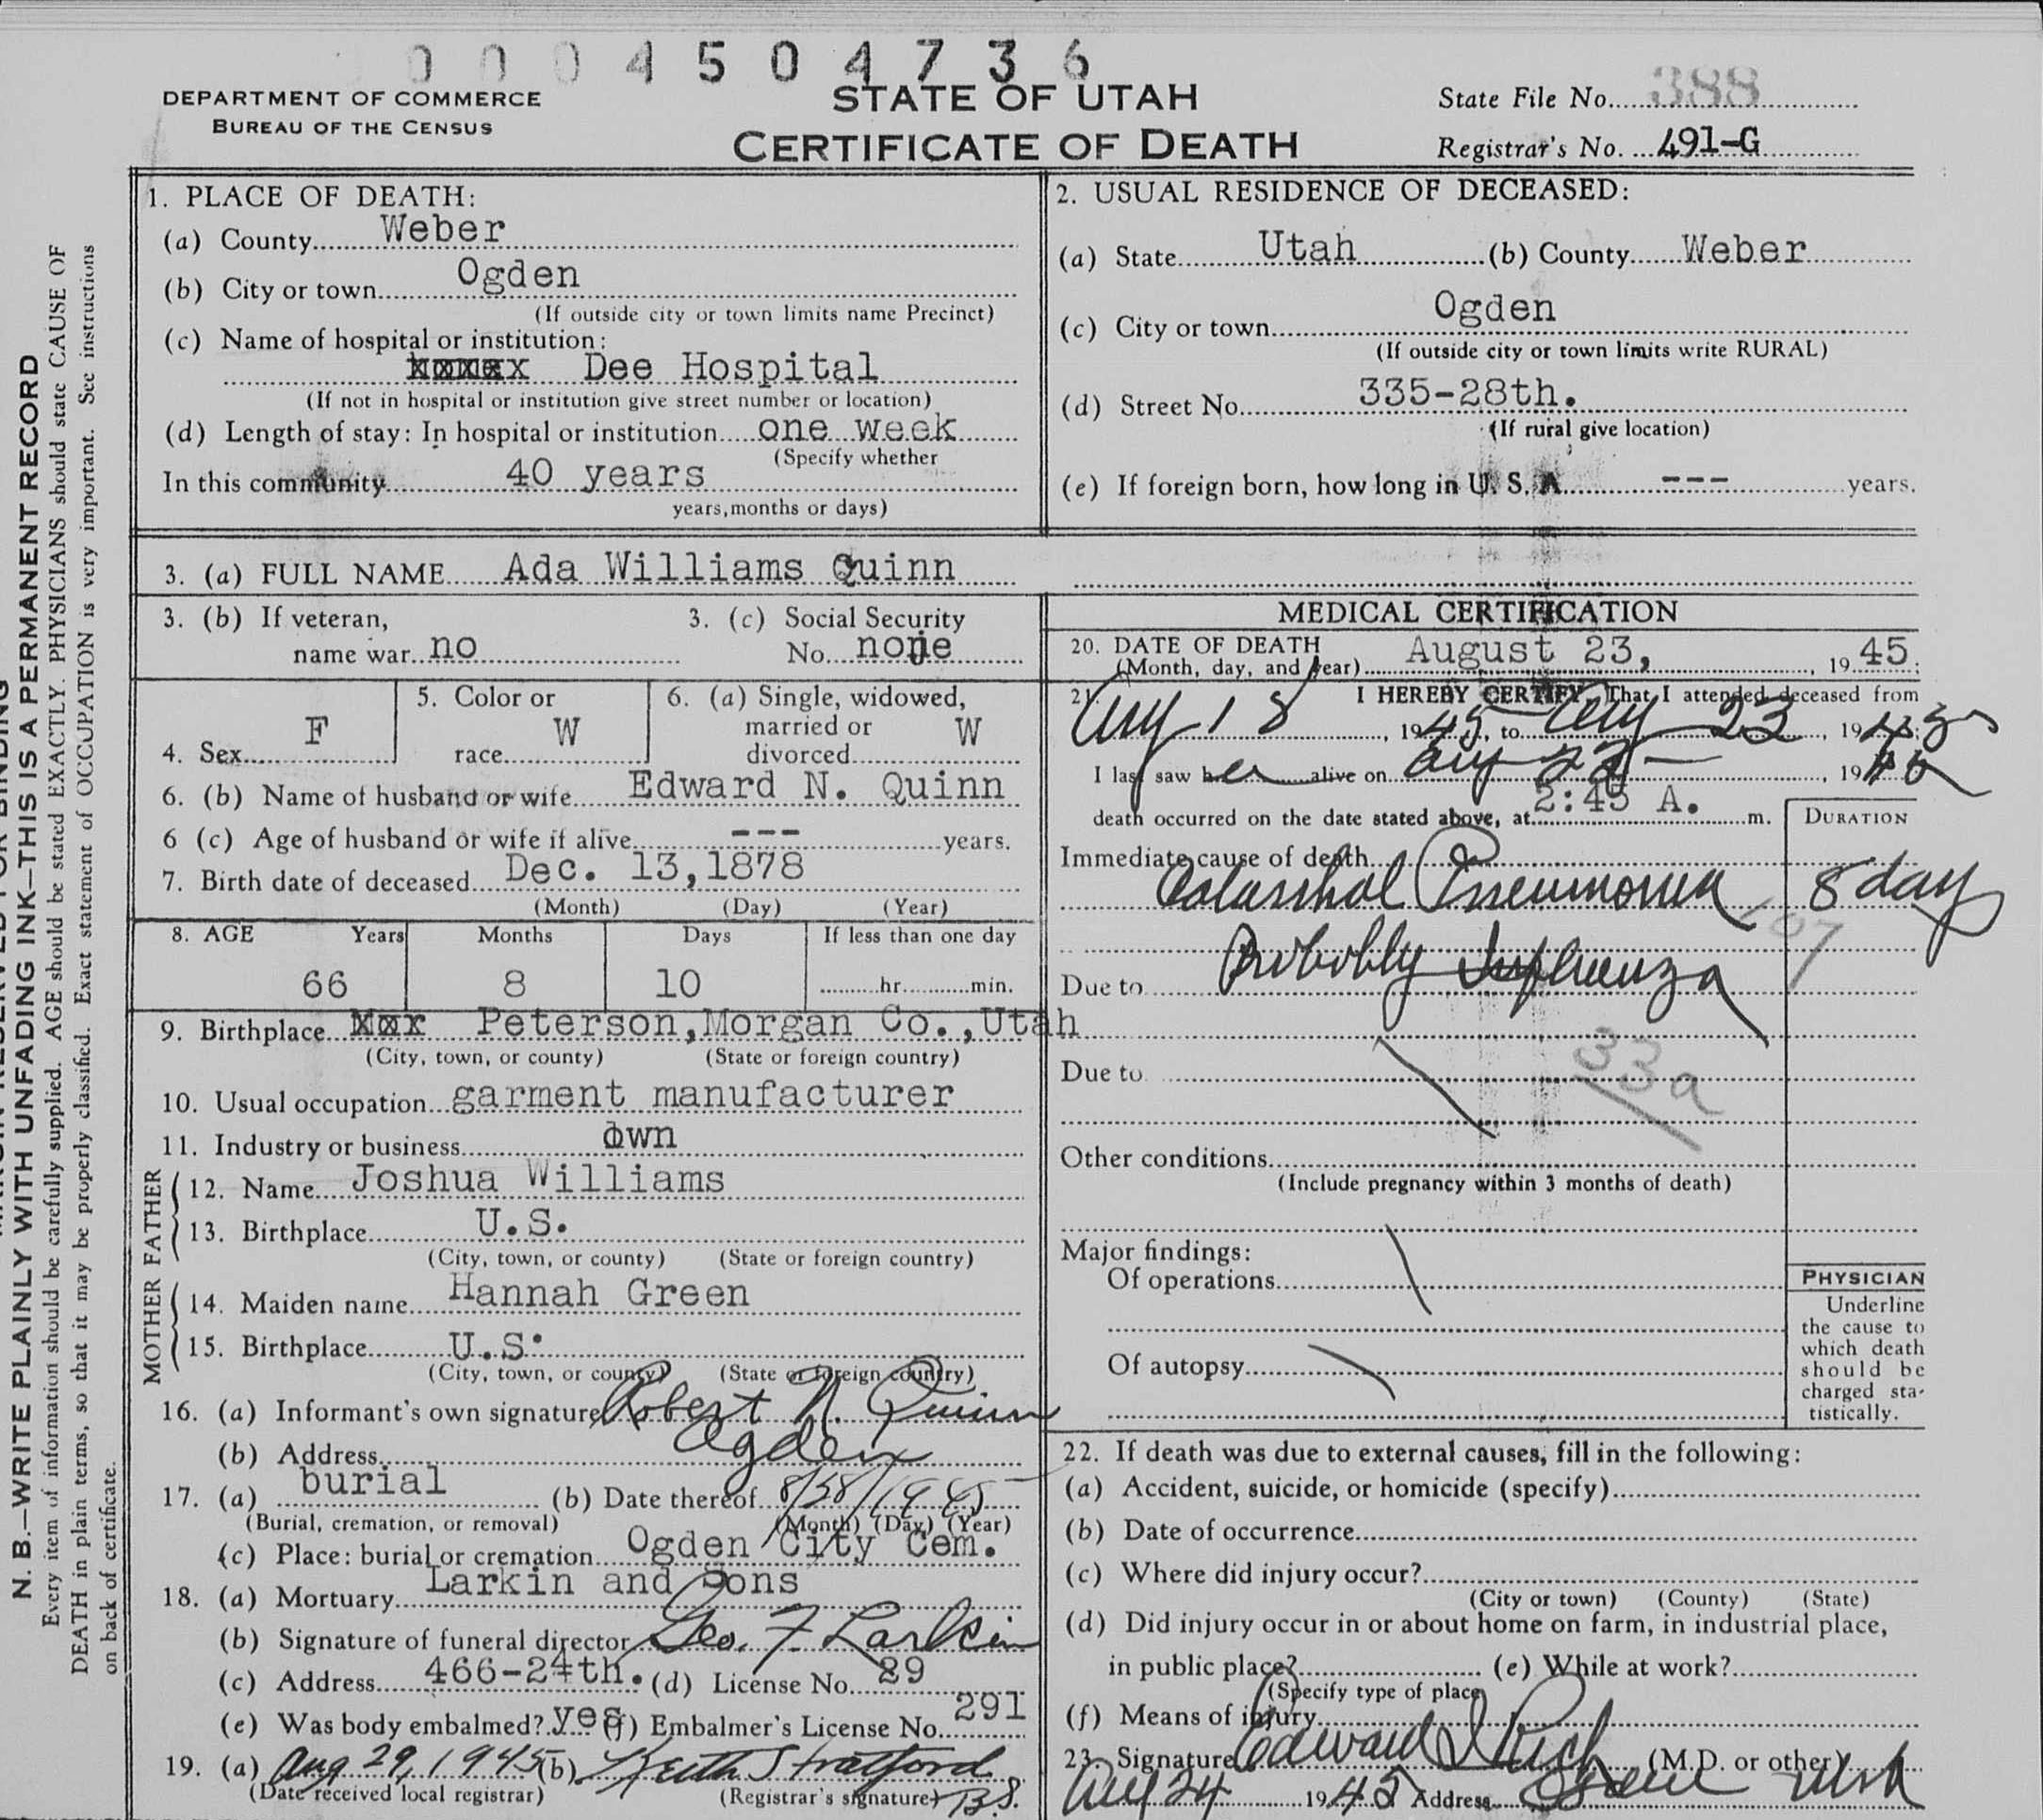 0004504736
DEPARTMENT OF COMMERCE
BUREAU OF THE CENSUS
STATE OF UTAH
CERTIFICATE OF DEATH
State File No. 388
Registrar's No. 491-G
1. PLACE OF DEATH:
(a) County Weber
(b) City or town Ogden
(If outside city or town limits name Precinct)
(c) Name of hospital or institution:
Dee Hospital
(If not in hospital or institution give street number or location)
(d) Length of stay: In hospital or institution one week
(Specify whether
In this community 40 years
years, months or days)
2. USUAL RESIDENCE OF DECEASED:
(a) State Utah (b) County Weber
(c) City or town Ogden
(If outside city or town limits write RURAL)
(d) Street No. 335-28th.
(If rural give location)
(e) If foreign born, how long in U. S. A. --- years.
3. (a) FULL NAME Ada Williams Quinn
3. (b) If veteran, 3. (c) Social Security
name war no No. none
4. Sex F
5. Color or
race W
6. (a) Single, widowed,
married or
divorced W
6. (b) Name of husband or wife Edward N. Quinn
6 (c) Age of husband or wife if alive --- years.
7. Birth date of deceased Dec. 13, 1878
(Month) (Day) (Year)
8. AGE Years Months Days If less than one day
66 8 10 hr. min.
9. Birthplace Peterson, Morgan Co., Utah
(City, town, or county) (State or foreign country)
10. Usual occupation garment manufacturer
11. Industry or business own
FATHER
12. Name Joshua Williams
13. Birthplace U.S.
(City, town, or county) (State or foreign country)
MOTHER
14. Maiden name Hannah Green
15. Birthplace U.S.
(City, town, or county) (State or foreign country)
16. (a) Informant's own signature Robert N. Quinn
(b) Address Ogden
17. (a) burial (b) Date thereof 8/28/1945
(Burial, cremation, or removal) (Month) (Day) (Year)
(c) Place: burial or cremation Ogden City Cem.
18. (a) Mortuary Larkin and Sons
(b) Signature of funeral director Geo. F Larkin
(c) Address 466-24th. (d) License No. 29
(e) Was body embalmed? yes (f) Embalmer's License No. 291
19. (a) Aug 29, 1945 (b) Keith Stratford
(Date received local registrar) (Registrar's signature) BS.
MEDICAL CERTIFICATION
20. DATE OF DEATH
(Month, day, and year) August 23, 1945.
21. I HEREBY CERTIFY, That I attended deceased from
Aug 18, 1945, to Aug 23, 1945
I last saw her alive on Aug 1945
death occurred on the date stated above, at 2:45 A. m.
DURATION
Immediate cause of death
Pneumonia 8 day
107
Due to Probably Influenza
Due to
33a
Other conditions
(Include pregnancy within 3 months of death)
Major findings:
Of operations
Of autopsy
PHYSICIAN
Underline
the cause to
which death
should be
charged sta-
tistically.
22. If death was due to external causes, fill in the following:
(a) Accident, suicide, or homicide (specify)
(b) Date of occurrence
(c) Where did injury occur?
(City or town) (County) (State)
(d) Did injury occur in or about home on farm, in industrial place,
in public place? (e) While at work?
(Specify type of place)
(f) Means of injury
23. Signature Edward I Rich (M.D. or other)
Aug 24 1945 Address Ogden Utah
N. B.—WRITE PLAINLY WITH UNFADING INK—THIS IS A PERMANENT RECORD
Every item of information should be carefully supplied. AGE should be stated EXACTLY. PHYSICIANS should state CAUSE OF
DEATH in plain terms, so that it may be properly classified. Exact statement of OCCUPATION is very important. See instructions
on back of certificate.